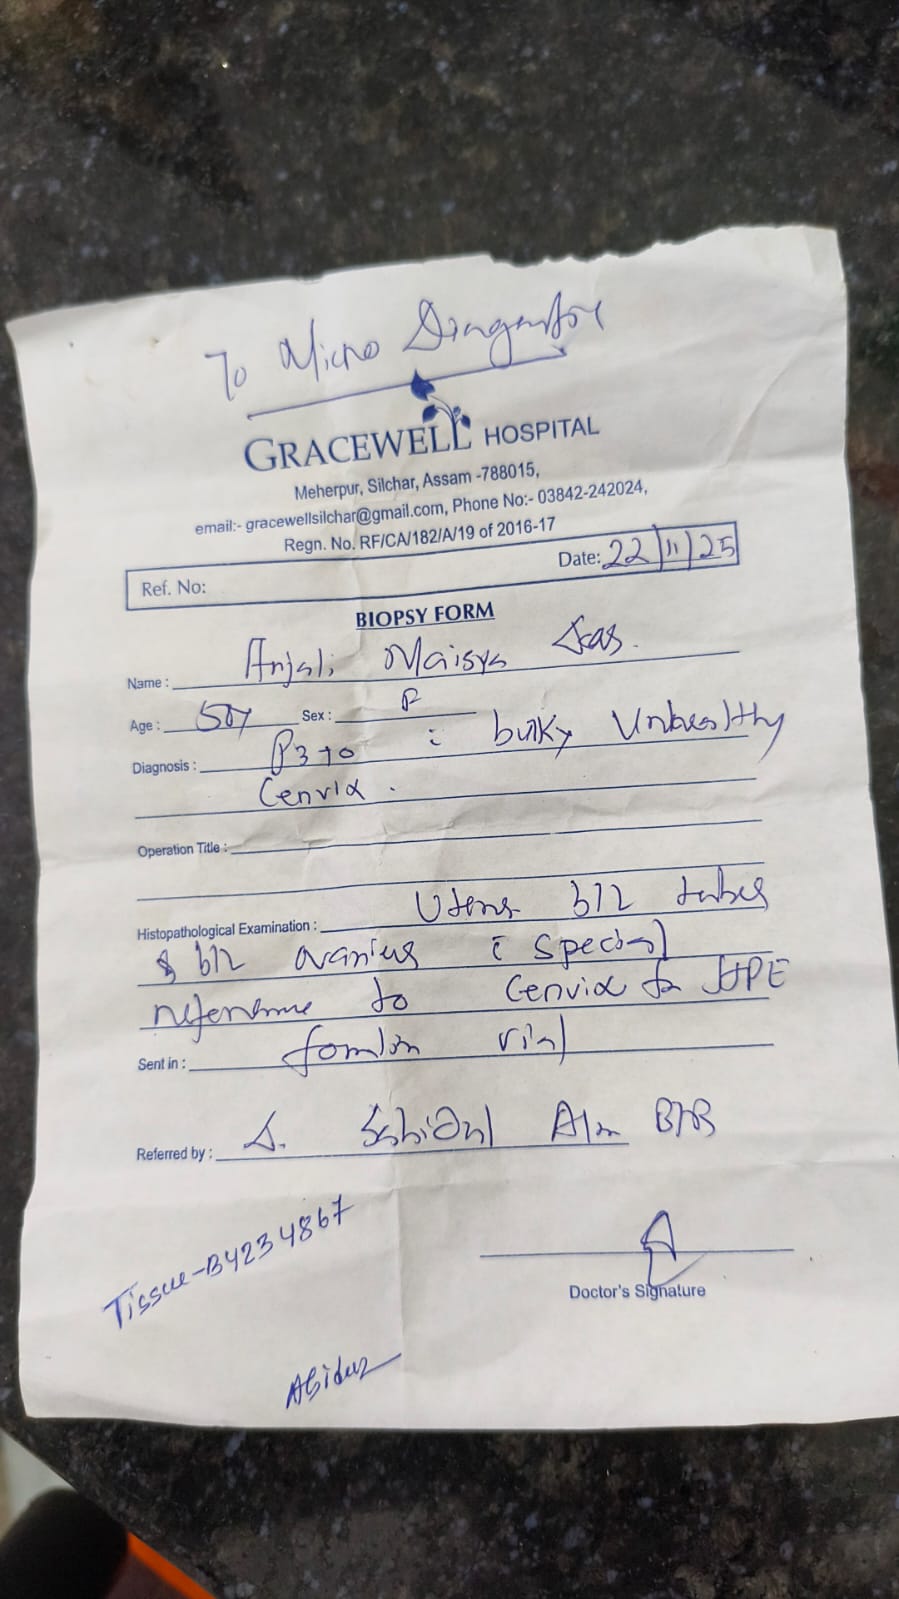 To Micro
GRACEWELL HOSPITAL
Meherpur, Silchar, Assam -788015,
email:- gracewellsilchar@gmail.com, Phone No:- 03842-242024,
Regn. No. RF/CA/182/A/19 of 2016-17
Ref. No: Date: 22/11/25
BIOPSY FORM
Name : Anjali Maisya Das.
Age : 50y Sex : F
Diagnosis : P3+0 c bulky Unhealthy
Cervix .
Operation Title :
Histopathological Examination : Uterus b/l tubes
& b/l ovaries c special
reference to Cervix for HPE
Sent in : formlin vial
Referred by : Alam
Tissue-B4234867
Doctor's Signature